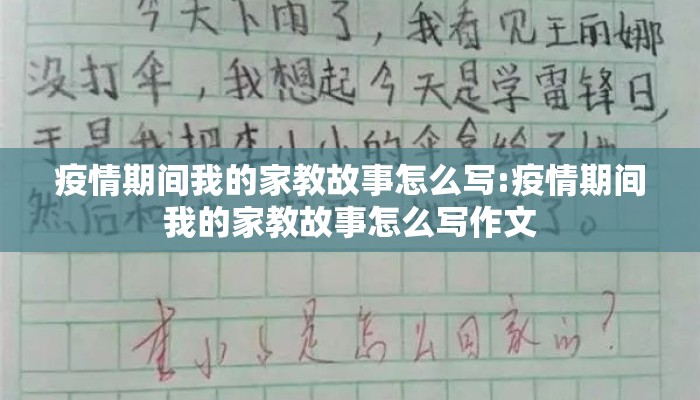 今天下雨了，我看见王丽娜
没打伞，我想起今天是学雷锋日，
于是我把李小小的伞拿给了她
疫情期间我的家教故事怎么写:疫情期间
我的家教故事怎么写作文
然后和 了。
小小是怎么回家的？